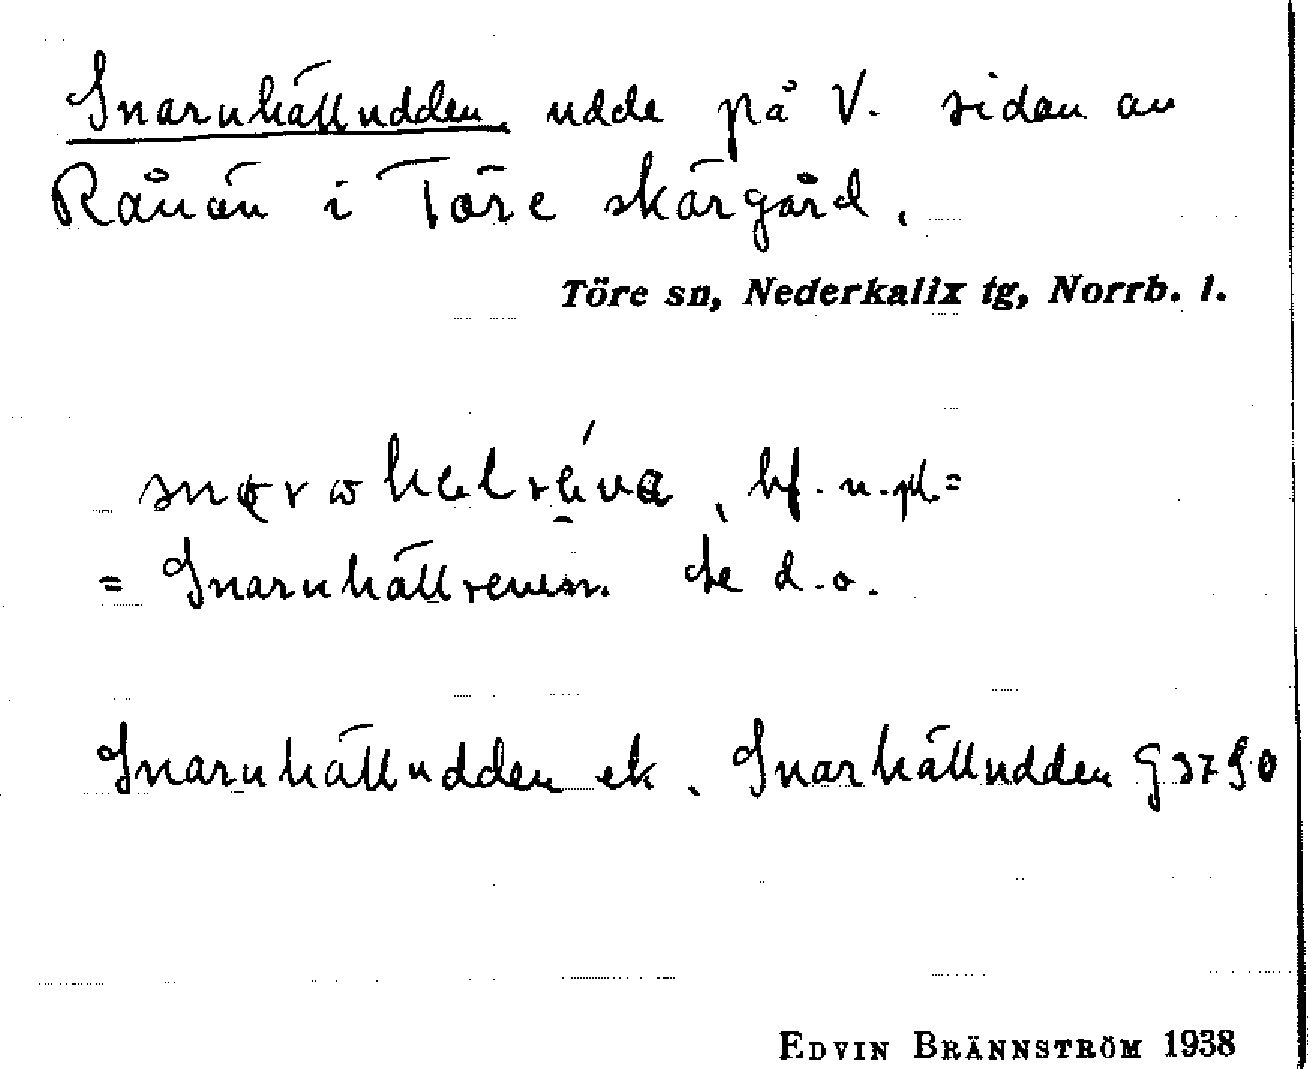 Snaruhälludden, udde på V. sidan av
Rånön i Töre skärgård.
Töre sn, Nederkalix tg, Norrb. l.
bf. n. pl. =
= Snaruhällreven. Se d. o.
Snaruhälludden ek. Snarhälludden
EDVIN BRÄNNSTRÖM 1938